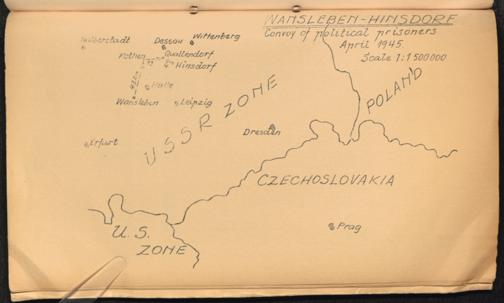 WANSLEBEN-HINSDORF
Convoy of political prisoners
April 1945.
Scale 1:1500000
Halberstadt
Dessau
Wittenberg
Kothen
Quallendorf
Hinsdorf
Halle
Wansleben
Leipzig
Erfurt
USSR ZONE
POLAND
Dresden
CZECHOSLOVAKIA
U.S.
ZONE
Prag